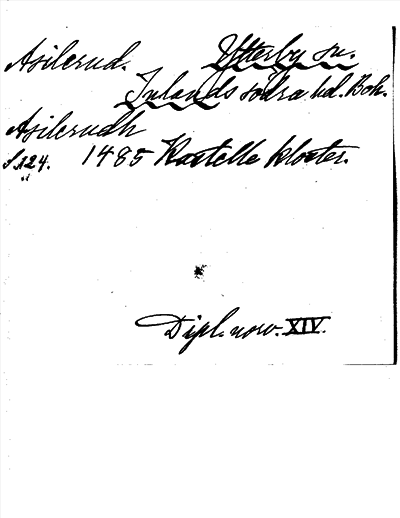 Asilerud. Ytterby sn.
Inlands södra hd. Boh.
Asilerudh
S. 124. 1485 Kastelle kloster.
Dipl. norv. XIV.